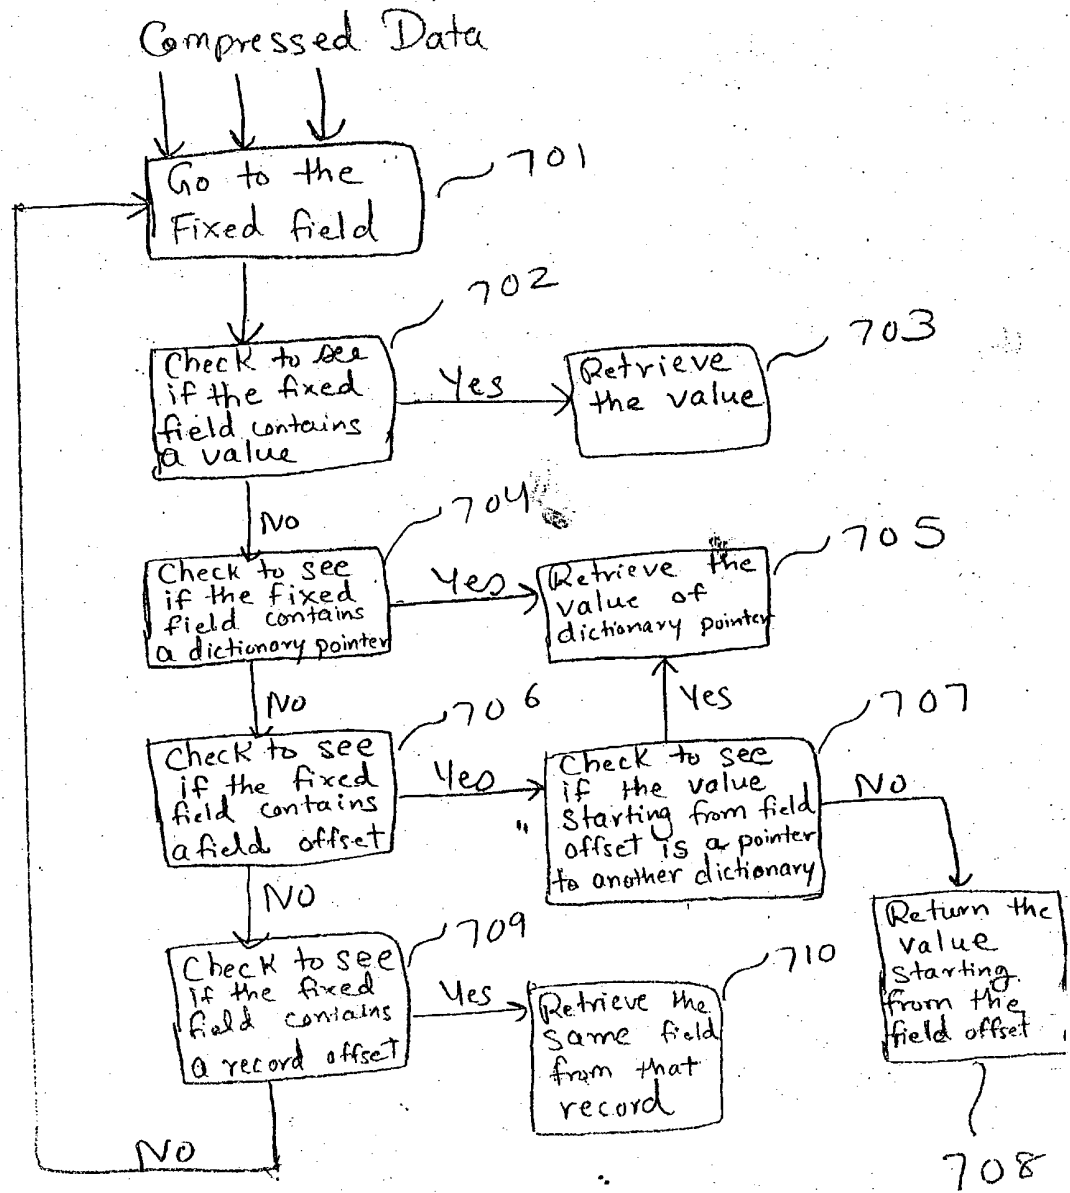 Compressed Data
Go to the
Fixed field
701
702
Check to see
if the fixed
field contains
a value
Yes
Retrieve
the value
703
No
704
Check to see
if the fixed
field contains
a dictionary pointer
Yes
Retrieve the
value of
dictionary pointer
705
No
Yes
706
Check to see
if the fixed
field contains
a field offset
Yes
Check to see
if the value
starting from field
offset is a pointer
to another dictionary
707
No
No
Return the
value
starting
from the
field offset
708
709
Check to see
if the fixed
field contains
a record offset
Yes
Retrieve the
same field
from that
record
710
No